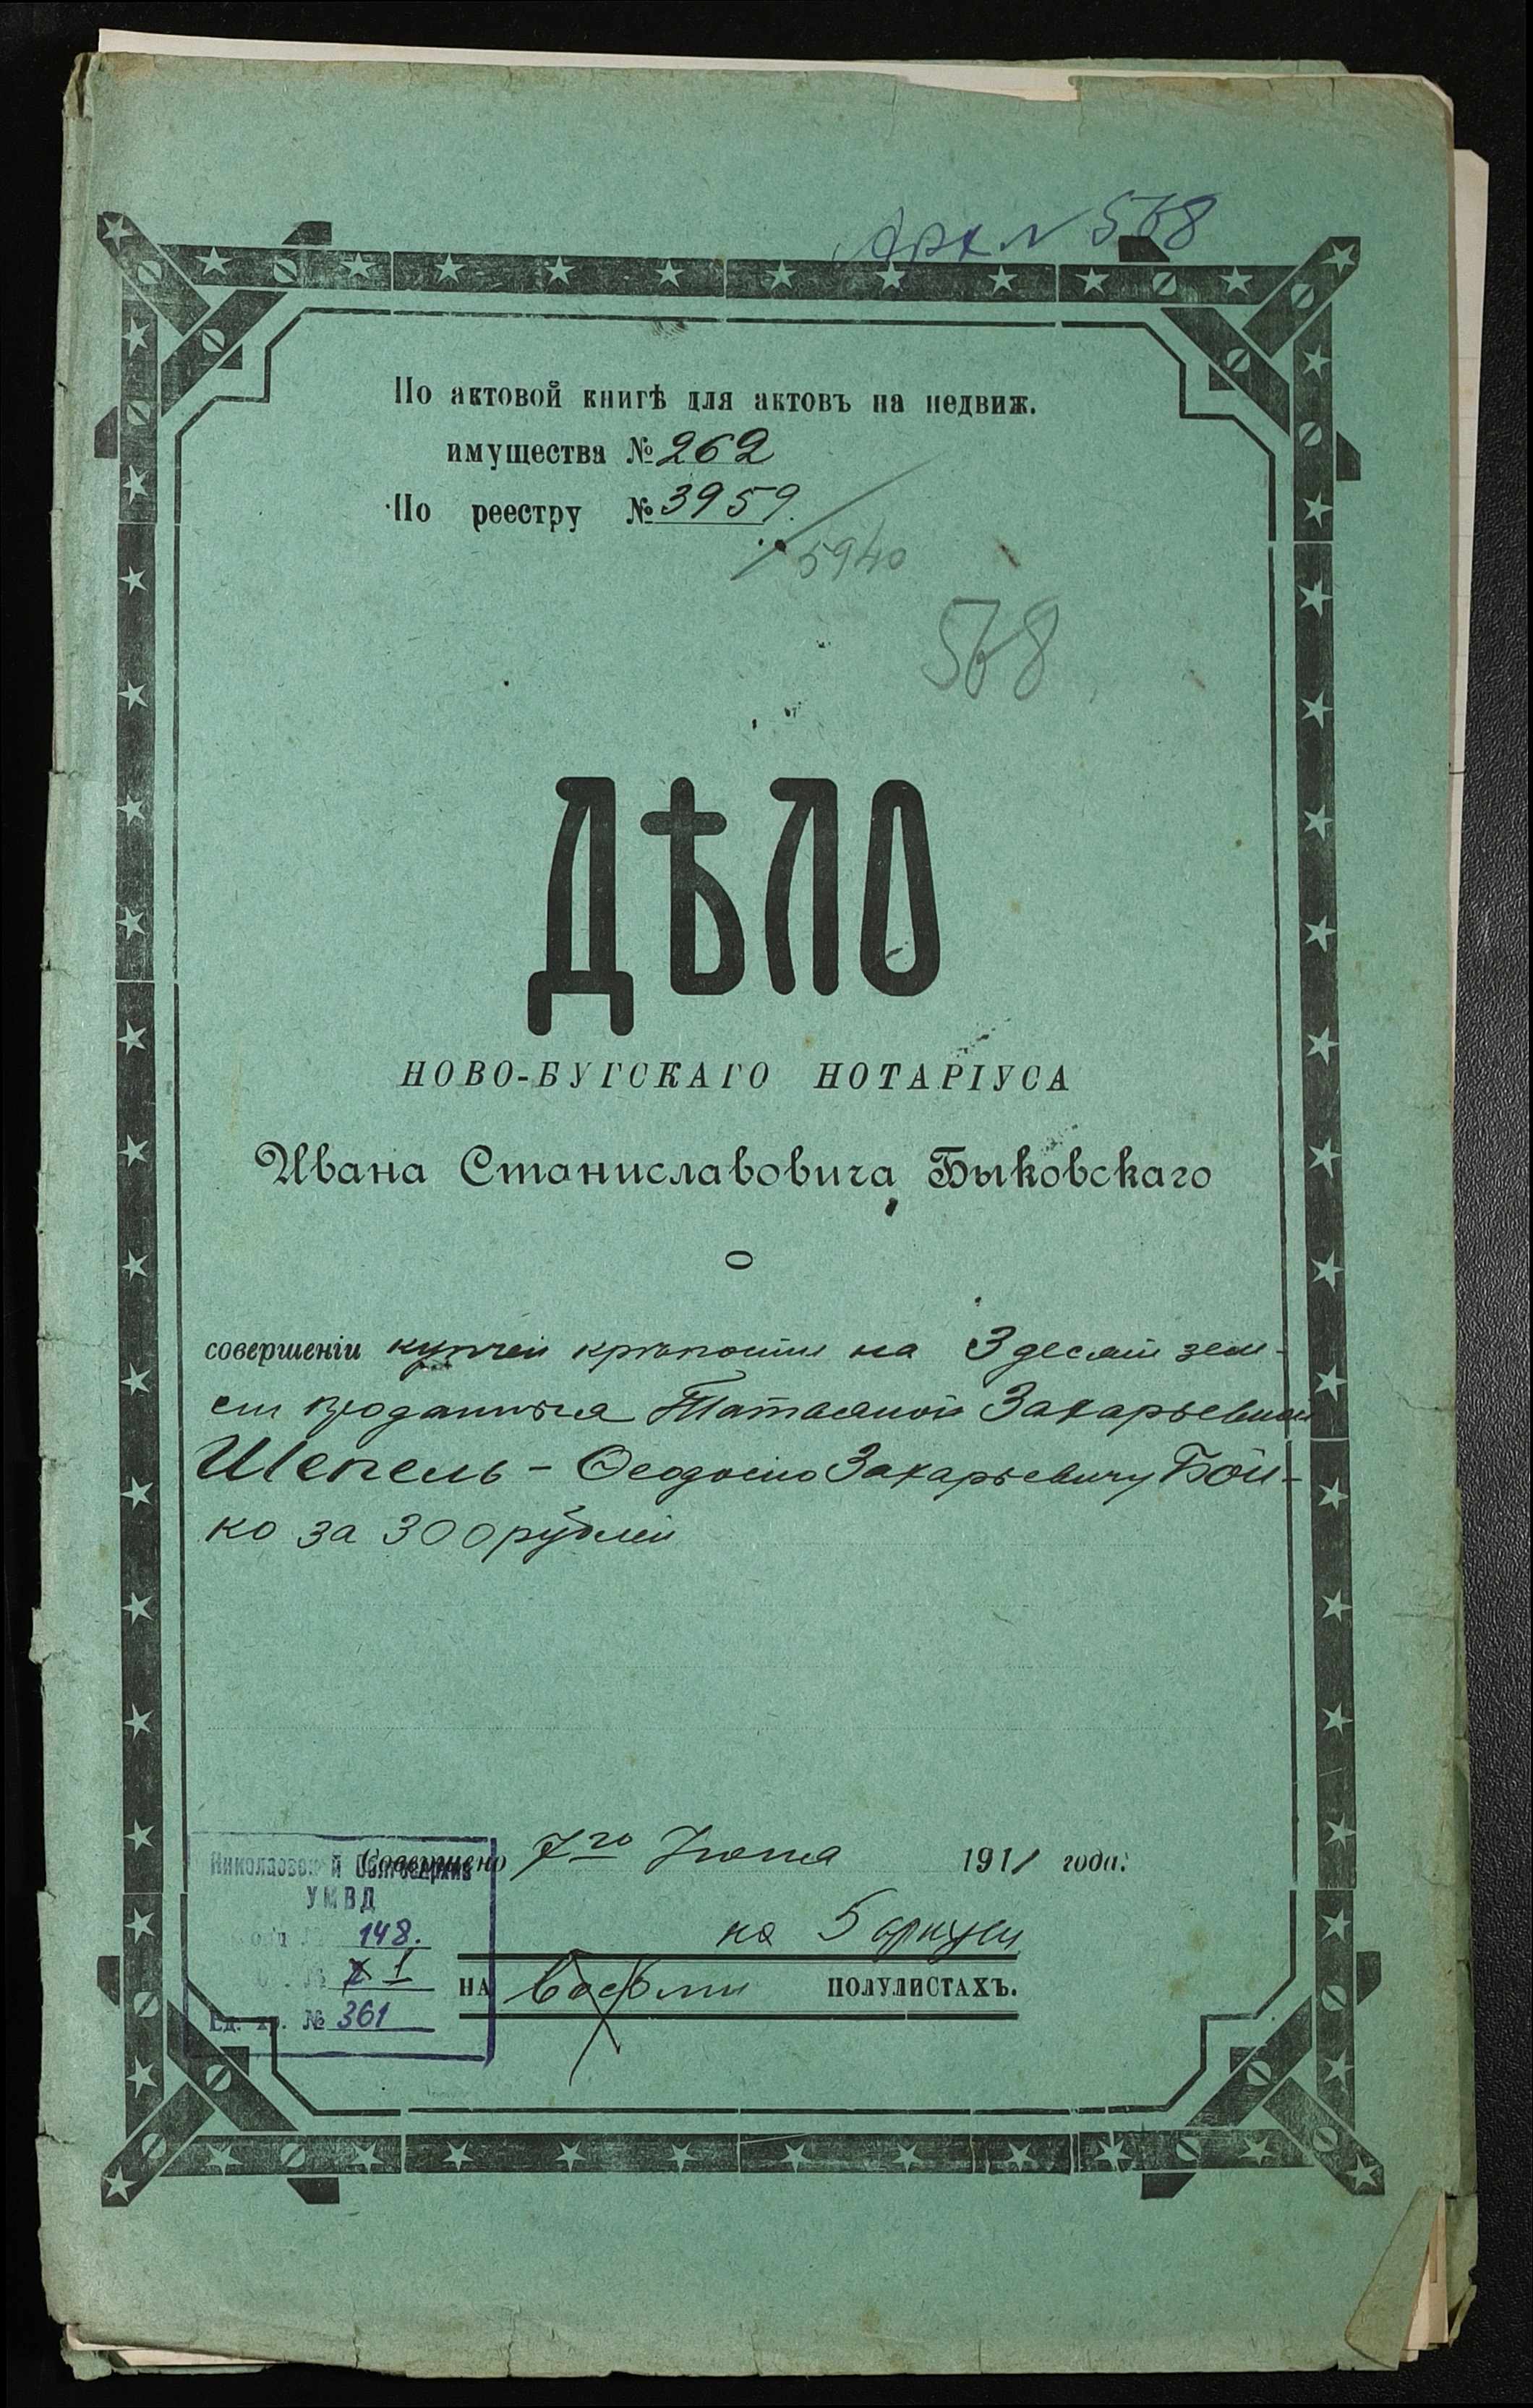 Арх № 568
По актовой книгѣ для актовъ на недвиж.
имущества № 262
По реестру № 3959
5940
568
ДѢЛО
НОВО-БУГСКАГО НОТАРІУСА
Ивана Станиславовича Быковскаго
о
совершеніи купчей крѣпости на 3 десят зем-
ли проданныя Татьяной Захарьевной
Шепель - Ѳеодосію Захарьевичу Бой-
ко за 300 рублей
Совершено 7го Іюня 1911 года.
Николаевский Облгосархив
УМВД
148.
1
Ед. хр. № 361
на 5
НА восьми ПОЛУЛИСТАХЪ.